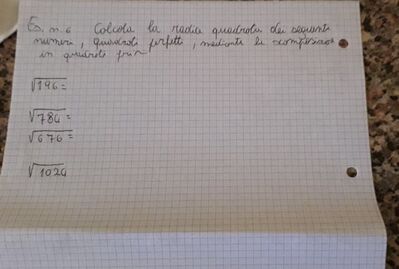 Es. n. 6 Calcola la radice quadrata dei seguenti
numeri, quadrati perfetti, mediante la scomposizione
in quadrati
√196 =
√784 =
√676 =
√1024